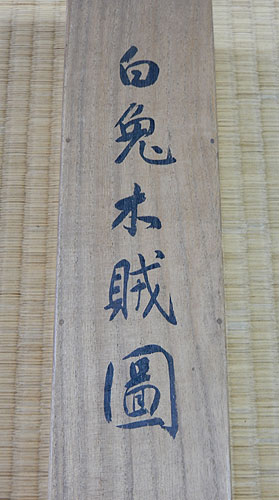 白兔木賊圖